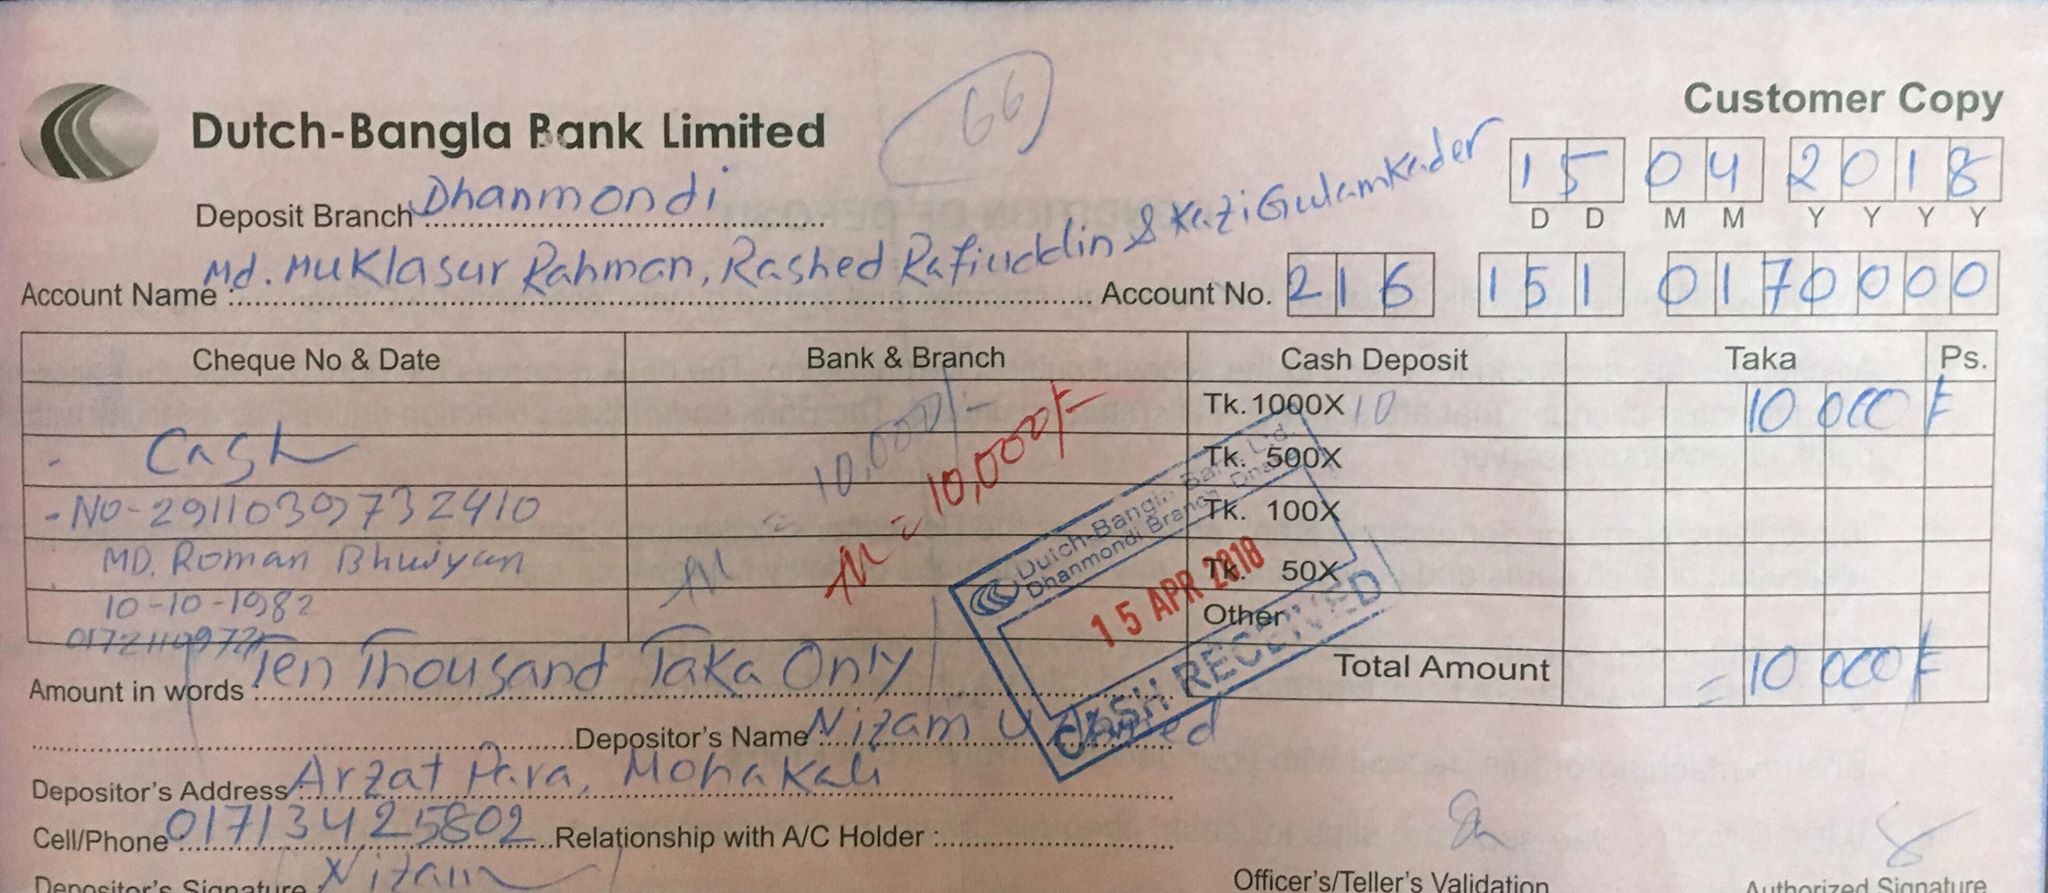 66
Customer Copy
Dutch-Bangla Bank Limited
15 04 2018
D D M M Y Y Y Y
Deposit Branch Dhanmondi
Account Name : Md. Muklasur Rahman, Rashed Rafiuddin & Kazi Gulam Kader
Account No. 216 151 0170000
Cheque No & Date Bank & Branch Cash Deposit Taka Ps.
Tk. 1000X 10 10 000
10,000/-
= 10,000/-
- Cash Tk. 500X
- NO- Tk. 100X
MD. Roman Bhuiyan Tk. 50X
10-10-1982 Other
Total Amount = 10 000
Dutch-Bangla Bank Ltd.
Dhanmondi Branch, Dhaka
15 APR 2018
CASH RECEIVED
Amount in words : Ten Thousand Taka Only
Depositor's Name : Nizam
Depositor's Address Arzat Para, Mohakali
Cell/Phone 01713425802 Relationship with A/C Holder :
Depositor's Signature Nizam
Officer's/Teller's Validation Authorized Signature